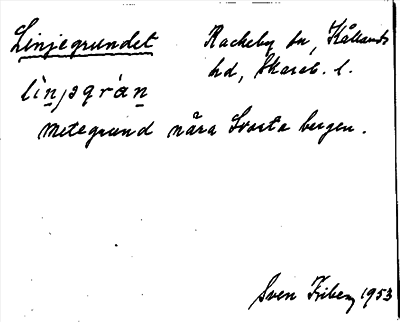 Linjegrundet Rackeby sn, Kållands
hd, Skarab. l.
lìn̲jəgrán̲
metegrund nära Svarta bergen.
Sven Friberg 1953